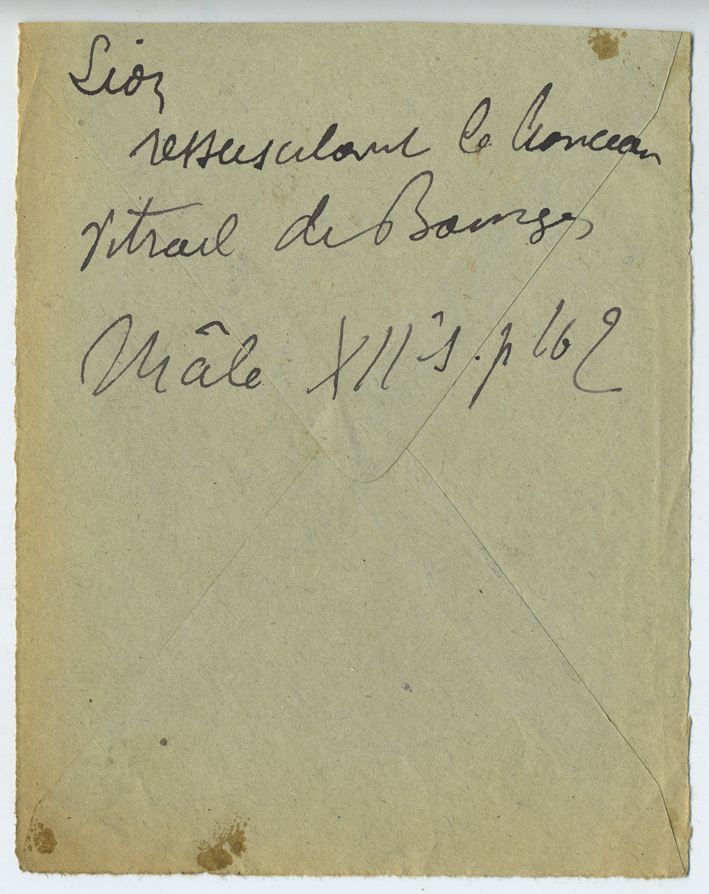 Lion
ressuscitant le lionceau
Vitrail de Bourges
Mâle XIIe s. p 162